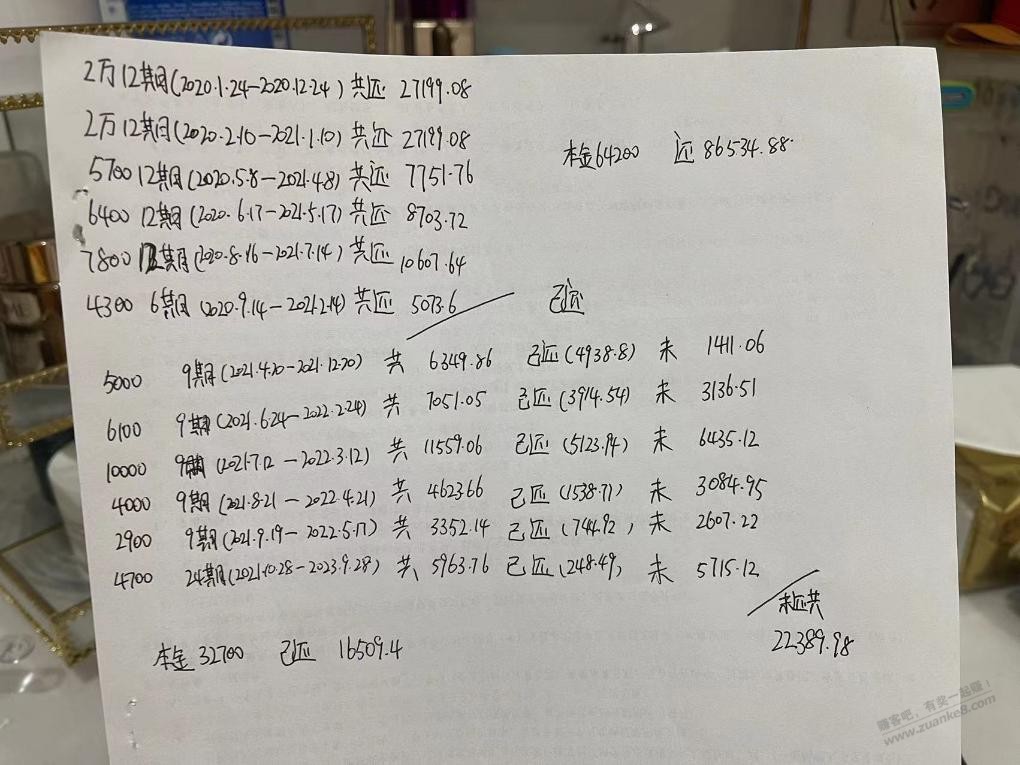 2万12期(2020.1.24-2020.12.24)共还 27199.08
2万12期(2020.2.10-2021.1.10)共还 27199.08
本金64200 还 86534.88
5700 12期(2020.5.8-2021.4.8)共还 7751.76
6400 12期(2020.6.17-2021.5.17)共还 8703.72
7800 12期(2020.8.16-2021.7.14)共还 10607.64
4300 6期(2020.9.14-2021.2.14)共还 5073.6 已还
5000 9期(2021.4.20-2021.12.20) 共 6349.86 已还(4938.8) 未 1411.06
6100 9期(2021.6.24-2022.2.24) 共 7051.05 已还(3914.54) 未 3136.51
10000 9期(2021.7.12-2022.3.12) 共 11559.06 已还(5123.94) 未 6435.12
4000 9期(2021.8.21-2022.4.21) 共 4623.66 已还(1538.71) 未 3084.95
2900 9期(2021.9.19-2022.5.17) 共 3352.14 已还(744.92) 未 2607.22
4700 24期(2021.10.28-2023.9.28) 共 5963.76 已还(248.49) 未 5715.12
未还共
22389.98
本金 32700 已还 16509.4
赚客吧，有奖一起赚！
www.zuanke8.com